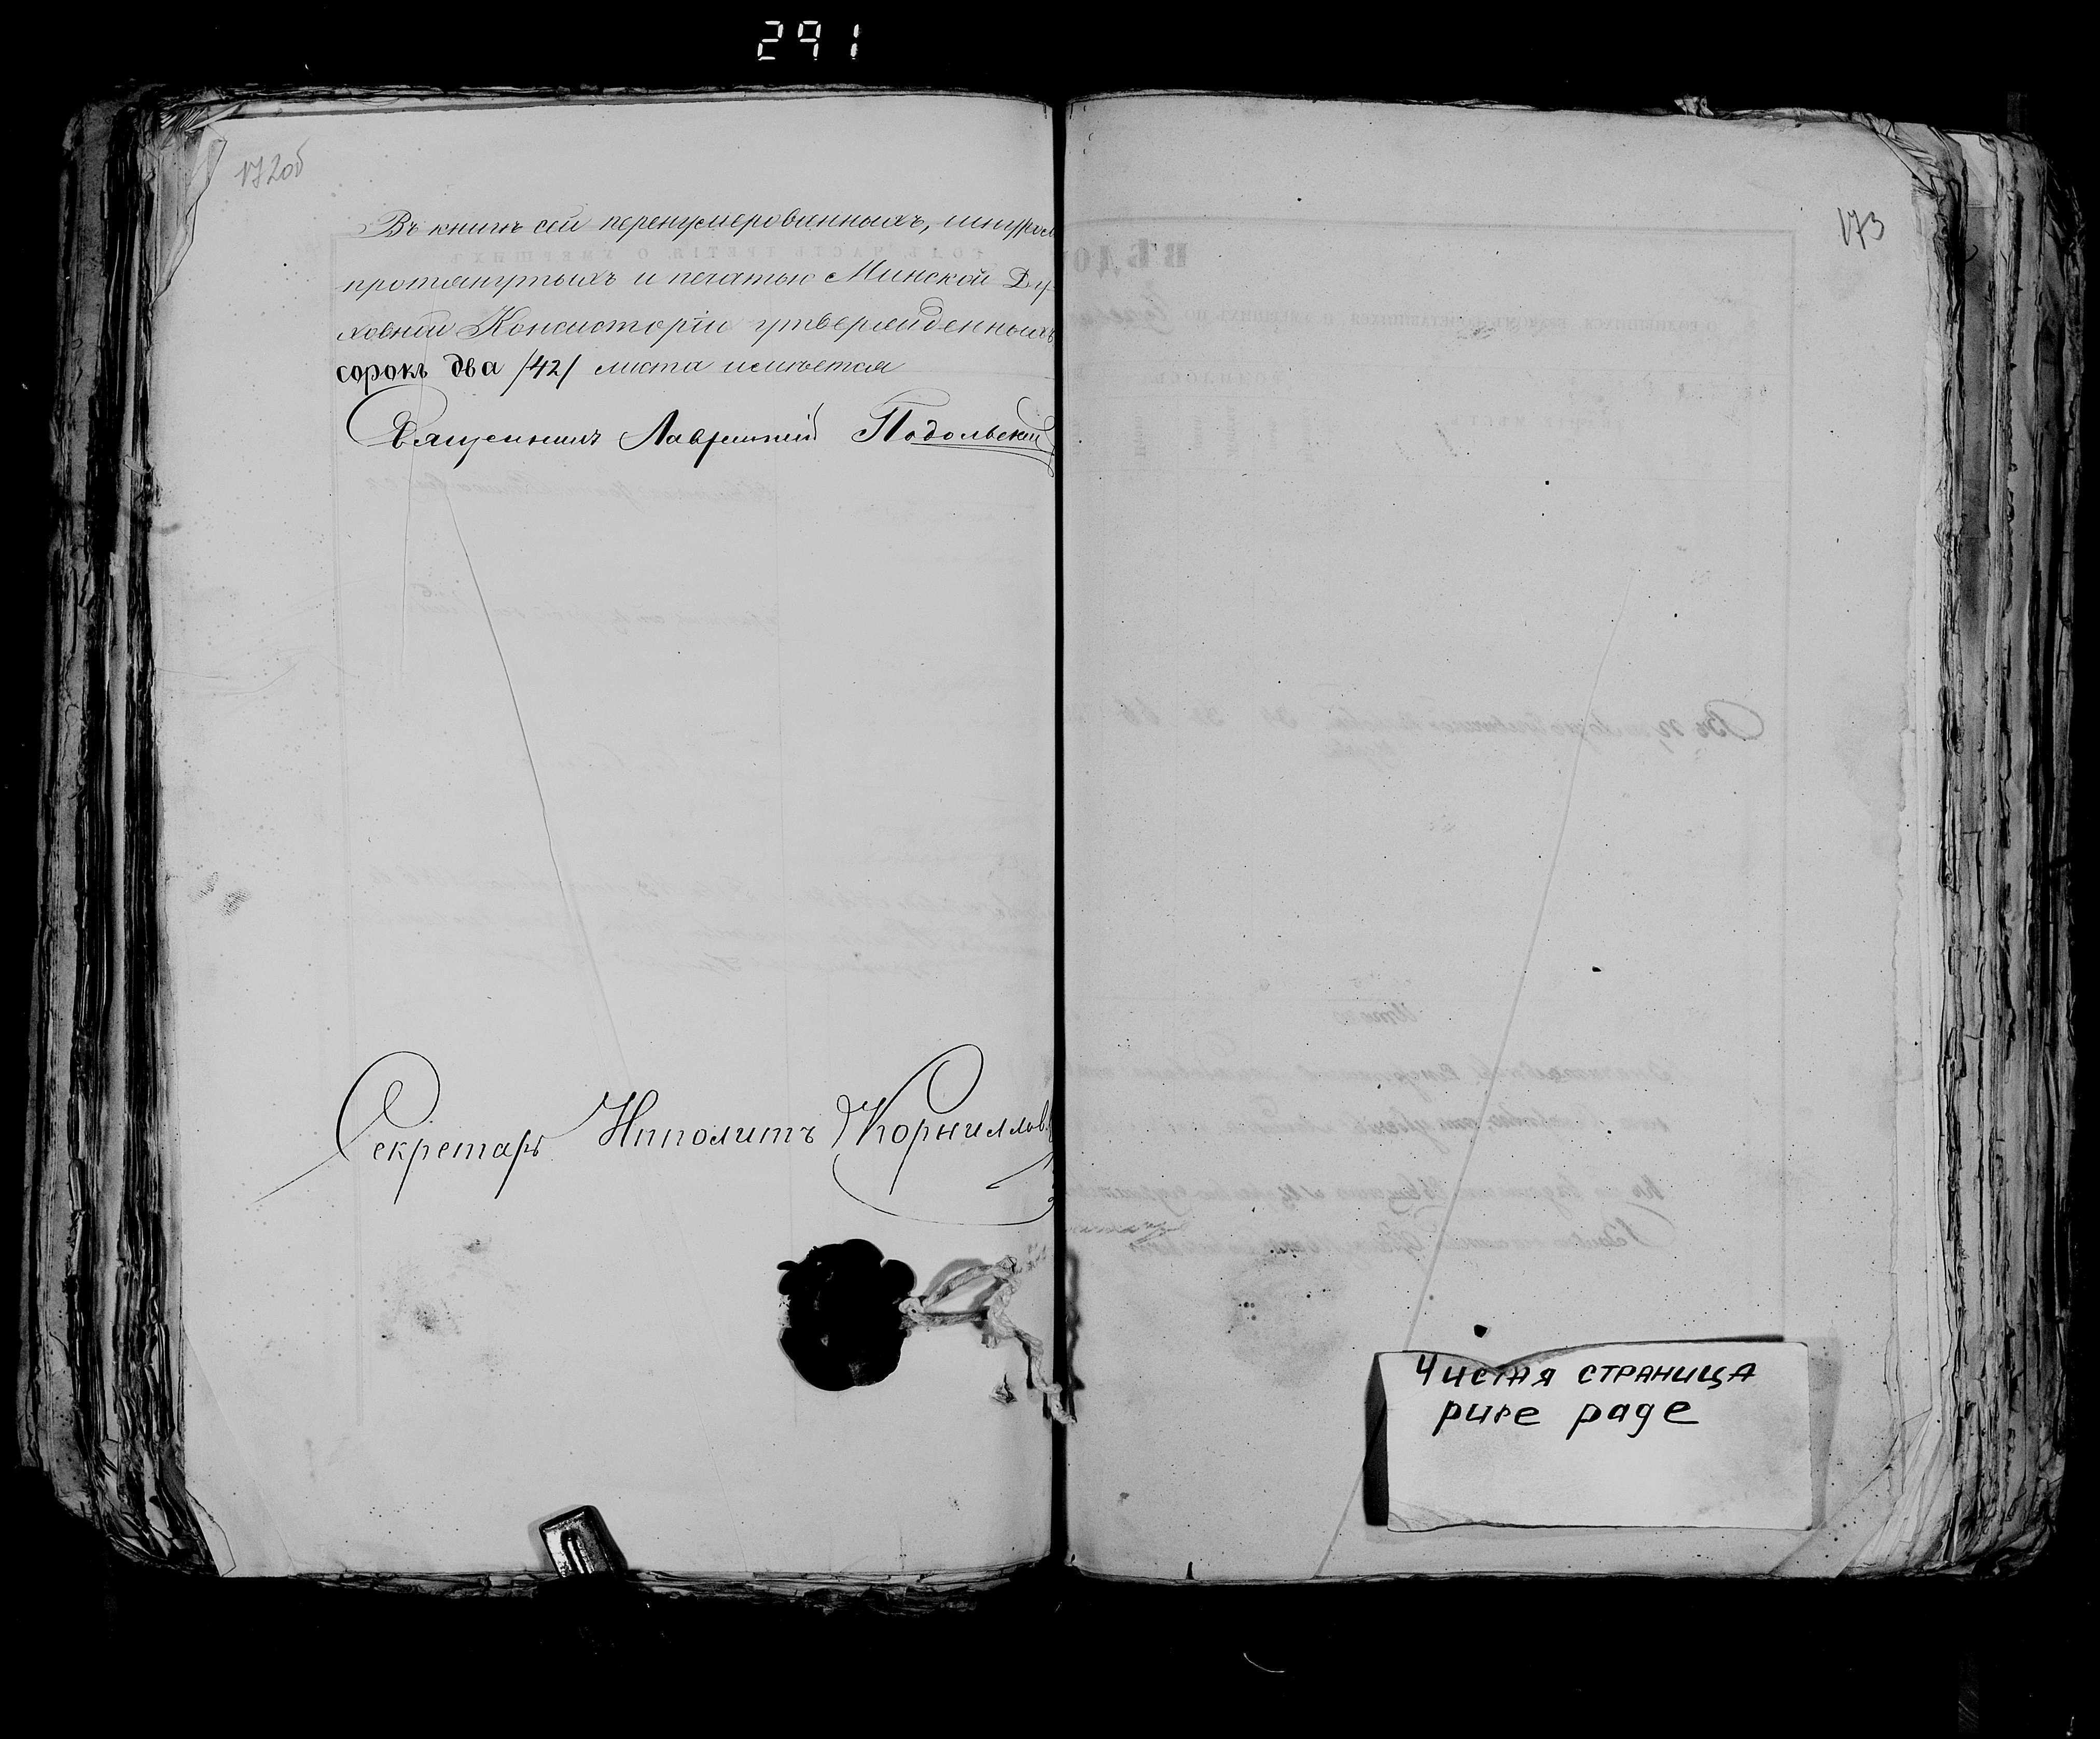 291
172об
Въ книгѣ сей перенумерованныхъ, шнуром
протянутыхъ и печатью Минской Ду-
ховной Консисторіи утвержденныхъ
сорокъ два /42/ листа имѣется
Священникъ Лаврентій Подольскій
Секретарь Ипполитъ Корнилов
173
Чистая страница
pure page